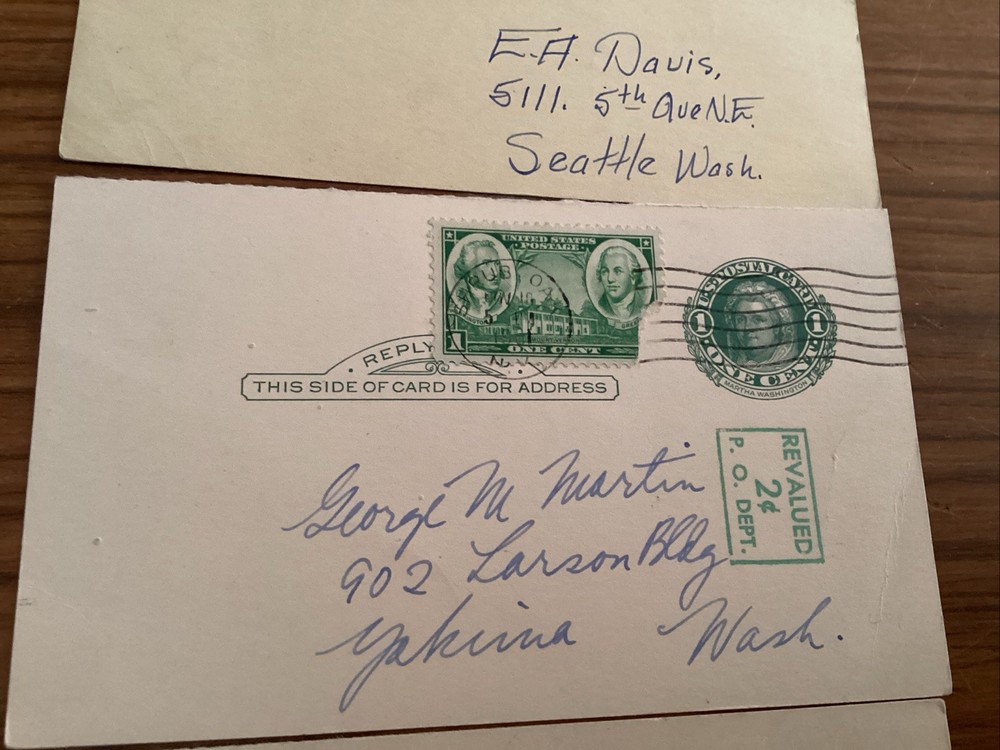 E.A. Davis,
5111. 5th Ave N.E.
Seattle Wash.
UNITED STATES
POSTAGE
1
ONE CENT
U.S. POSTAL CARD
1 1
ONE CENT
MARTHA WASHINGTON
REPLY
THIS SIDE OF CARD IS FOR ADDRESS
REVALUED
2¢
P. O. DEPT.
George M Martin
902 Larson Bldg
Yakima Wash.